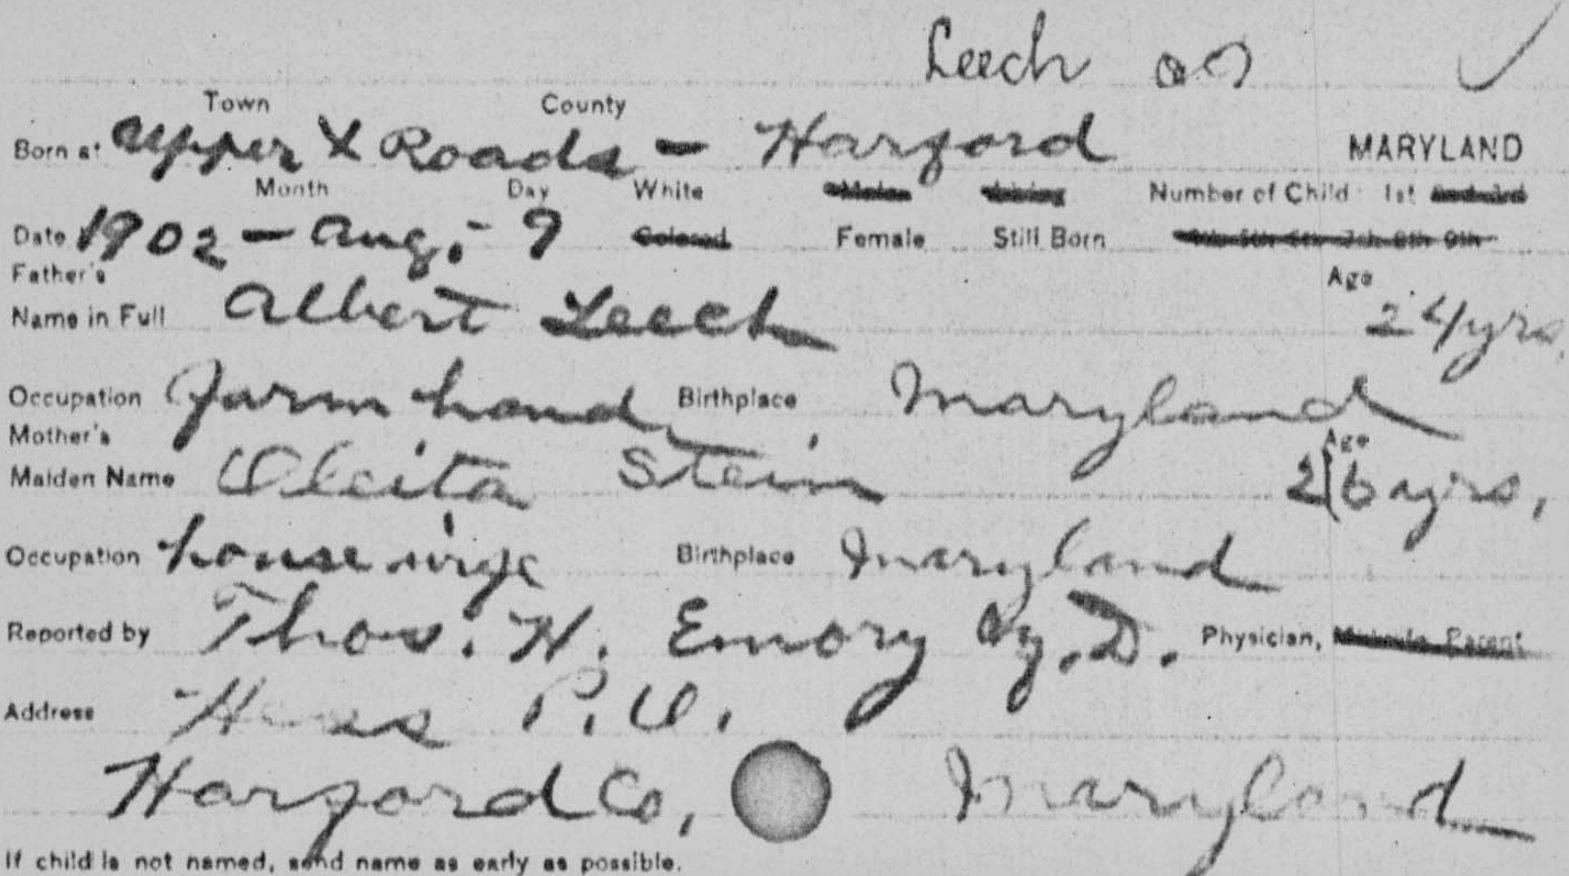 Leech
Town County
Born at Upper X Roads - Harford MARYLAND
Month Day White Male Living Number of Child 1st 2nd 3rd
Date 1902 - Aug. 9 Colored Female Still Born 4th 5th 6th 7th 8th 9th
Father's Age
Name in Full Albert Leech 24 yrs,
Occupation Farm hand Birthplace Maryland
Mother's Age
Maiden Name Oleita Stein 26 yrs,
Occupation house wife Birthplace Maryland
Reported by Thos. H. Emory M.D. Physician, Midwife, Parent
Address Hess P.O.
Harford Co, Maryland
If child is not named, send name as early as possible.